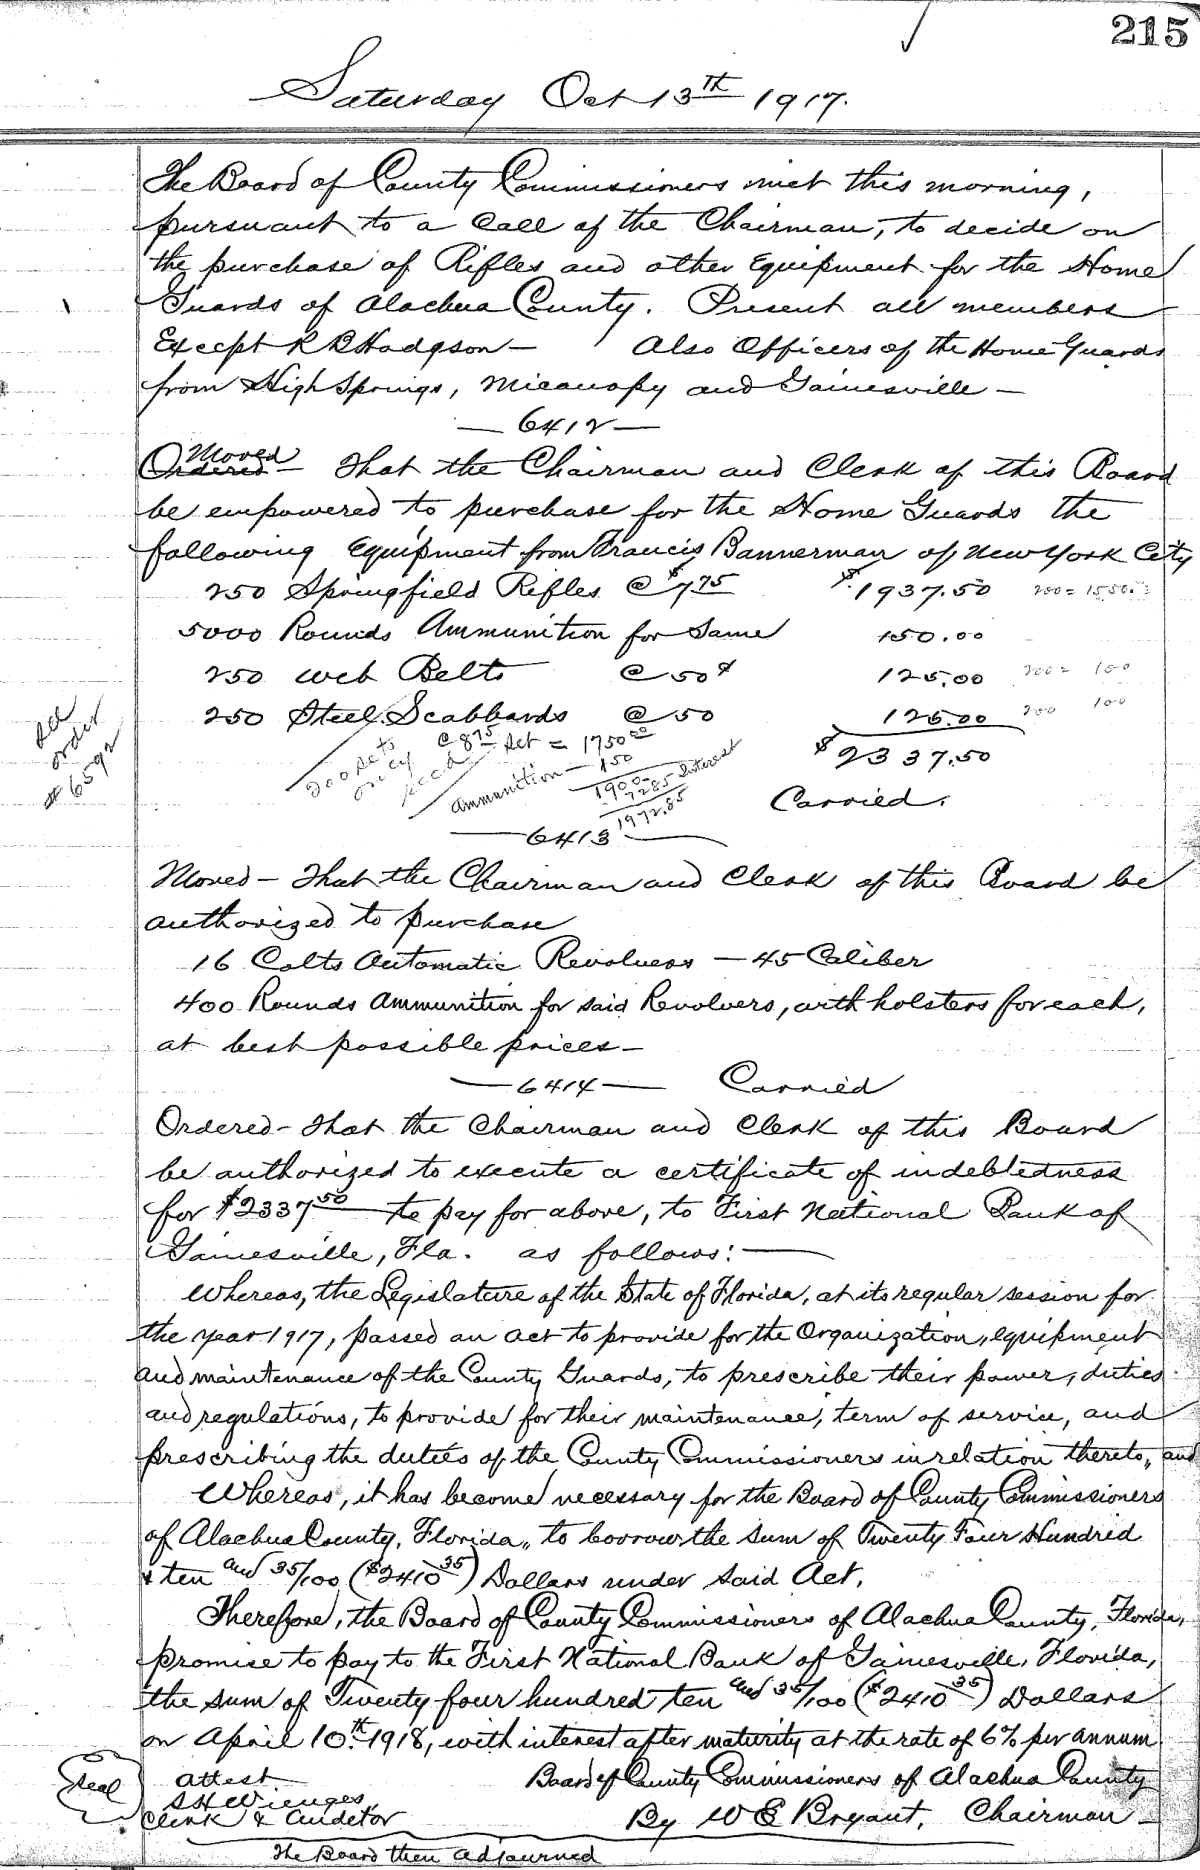 215
Saturday Oct 13th 1917.
The Board of County Commissioners met this morning,
pursuant to a call of the Chairman, to decide on
the purchase of Rifles and other Equipment for the Home
Guards of Alachua County. Present all members
Except R B Hodgson — Also Officers of the Home Guards
from High Springs, Micanopy and Gainesville —
— 6412 —
Moved
Ordered — That the Chairman and Clerk of this Board
be empowered to purchase for the Home Guards the
following Equipment from Francis Bannerman of New York City
250 Springfield Rifles @ $7.75 $1937.50 200 = 1550.
5000 Rounds Ammunition for Same 150.00
250 Web Belts @ 50¢ 125.00 200 = 100
250 Steel Scabbards @ 50 125.00 200 100
$2337.50
See order #6592
200 sets only recd @ 8.75 Set = 1750.00
Ammunition — 150
1900
72.85 Interest
1972.85
Carried.
— 6413 —
Moved — That the Chairman and Clerk of this Board be
authorized to purchase
16 Colts Automatic Revolvers — 45 Caliber
400 Rounds Ammunition for said Revolvers, with holsters for each,
at best possible prices —
— 6414 — Carried
Ordered — That the Chairman and Clerk of this Board
be authorized to execute a certificate of indebtedness
for $2337.50 — to pay for above, to First National Bank of
Gainesville, Fla. as follows: —
Whereas, the Legislature of the State of Florida, at its regular session for
the year 1917, passed an act to provide for the Organization, equipment
and maintenance of the County Guards, to prescribe their power, duties
and regulations, to provide for their maintenance, term of service, and
prescribing the duties of the County Commissioners in relation thereto, and
Whereas, it has become necessary for the Board of County Commissioners
of Alachua County, Florida, to borrow the sum of Twenty Four Hundred
& ten and 35/100 ($2410.35) Dollars under said Act.
Therefore, the Board of County Commissioners of Alachua County, Florida,
promise to pay to the First National Bank of Gainesville, Florida,
the sum of Twenty four hundred ten and 35/100 ($2410.35) Dollars
on April 10th 1918, with interest after maturity at the rate of 6% per annum
Seal Attest Board of County Commissioners of Alachua County
S H Wienges,
Clerk & Auditor By W E Bryant, Chairman —
The Board then adjourned